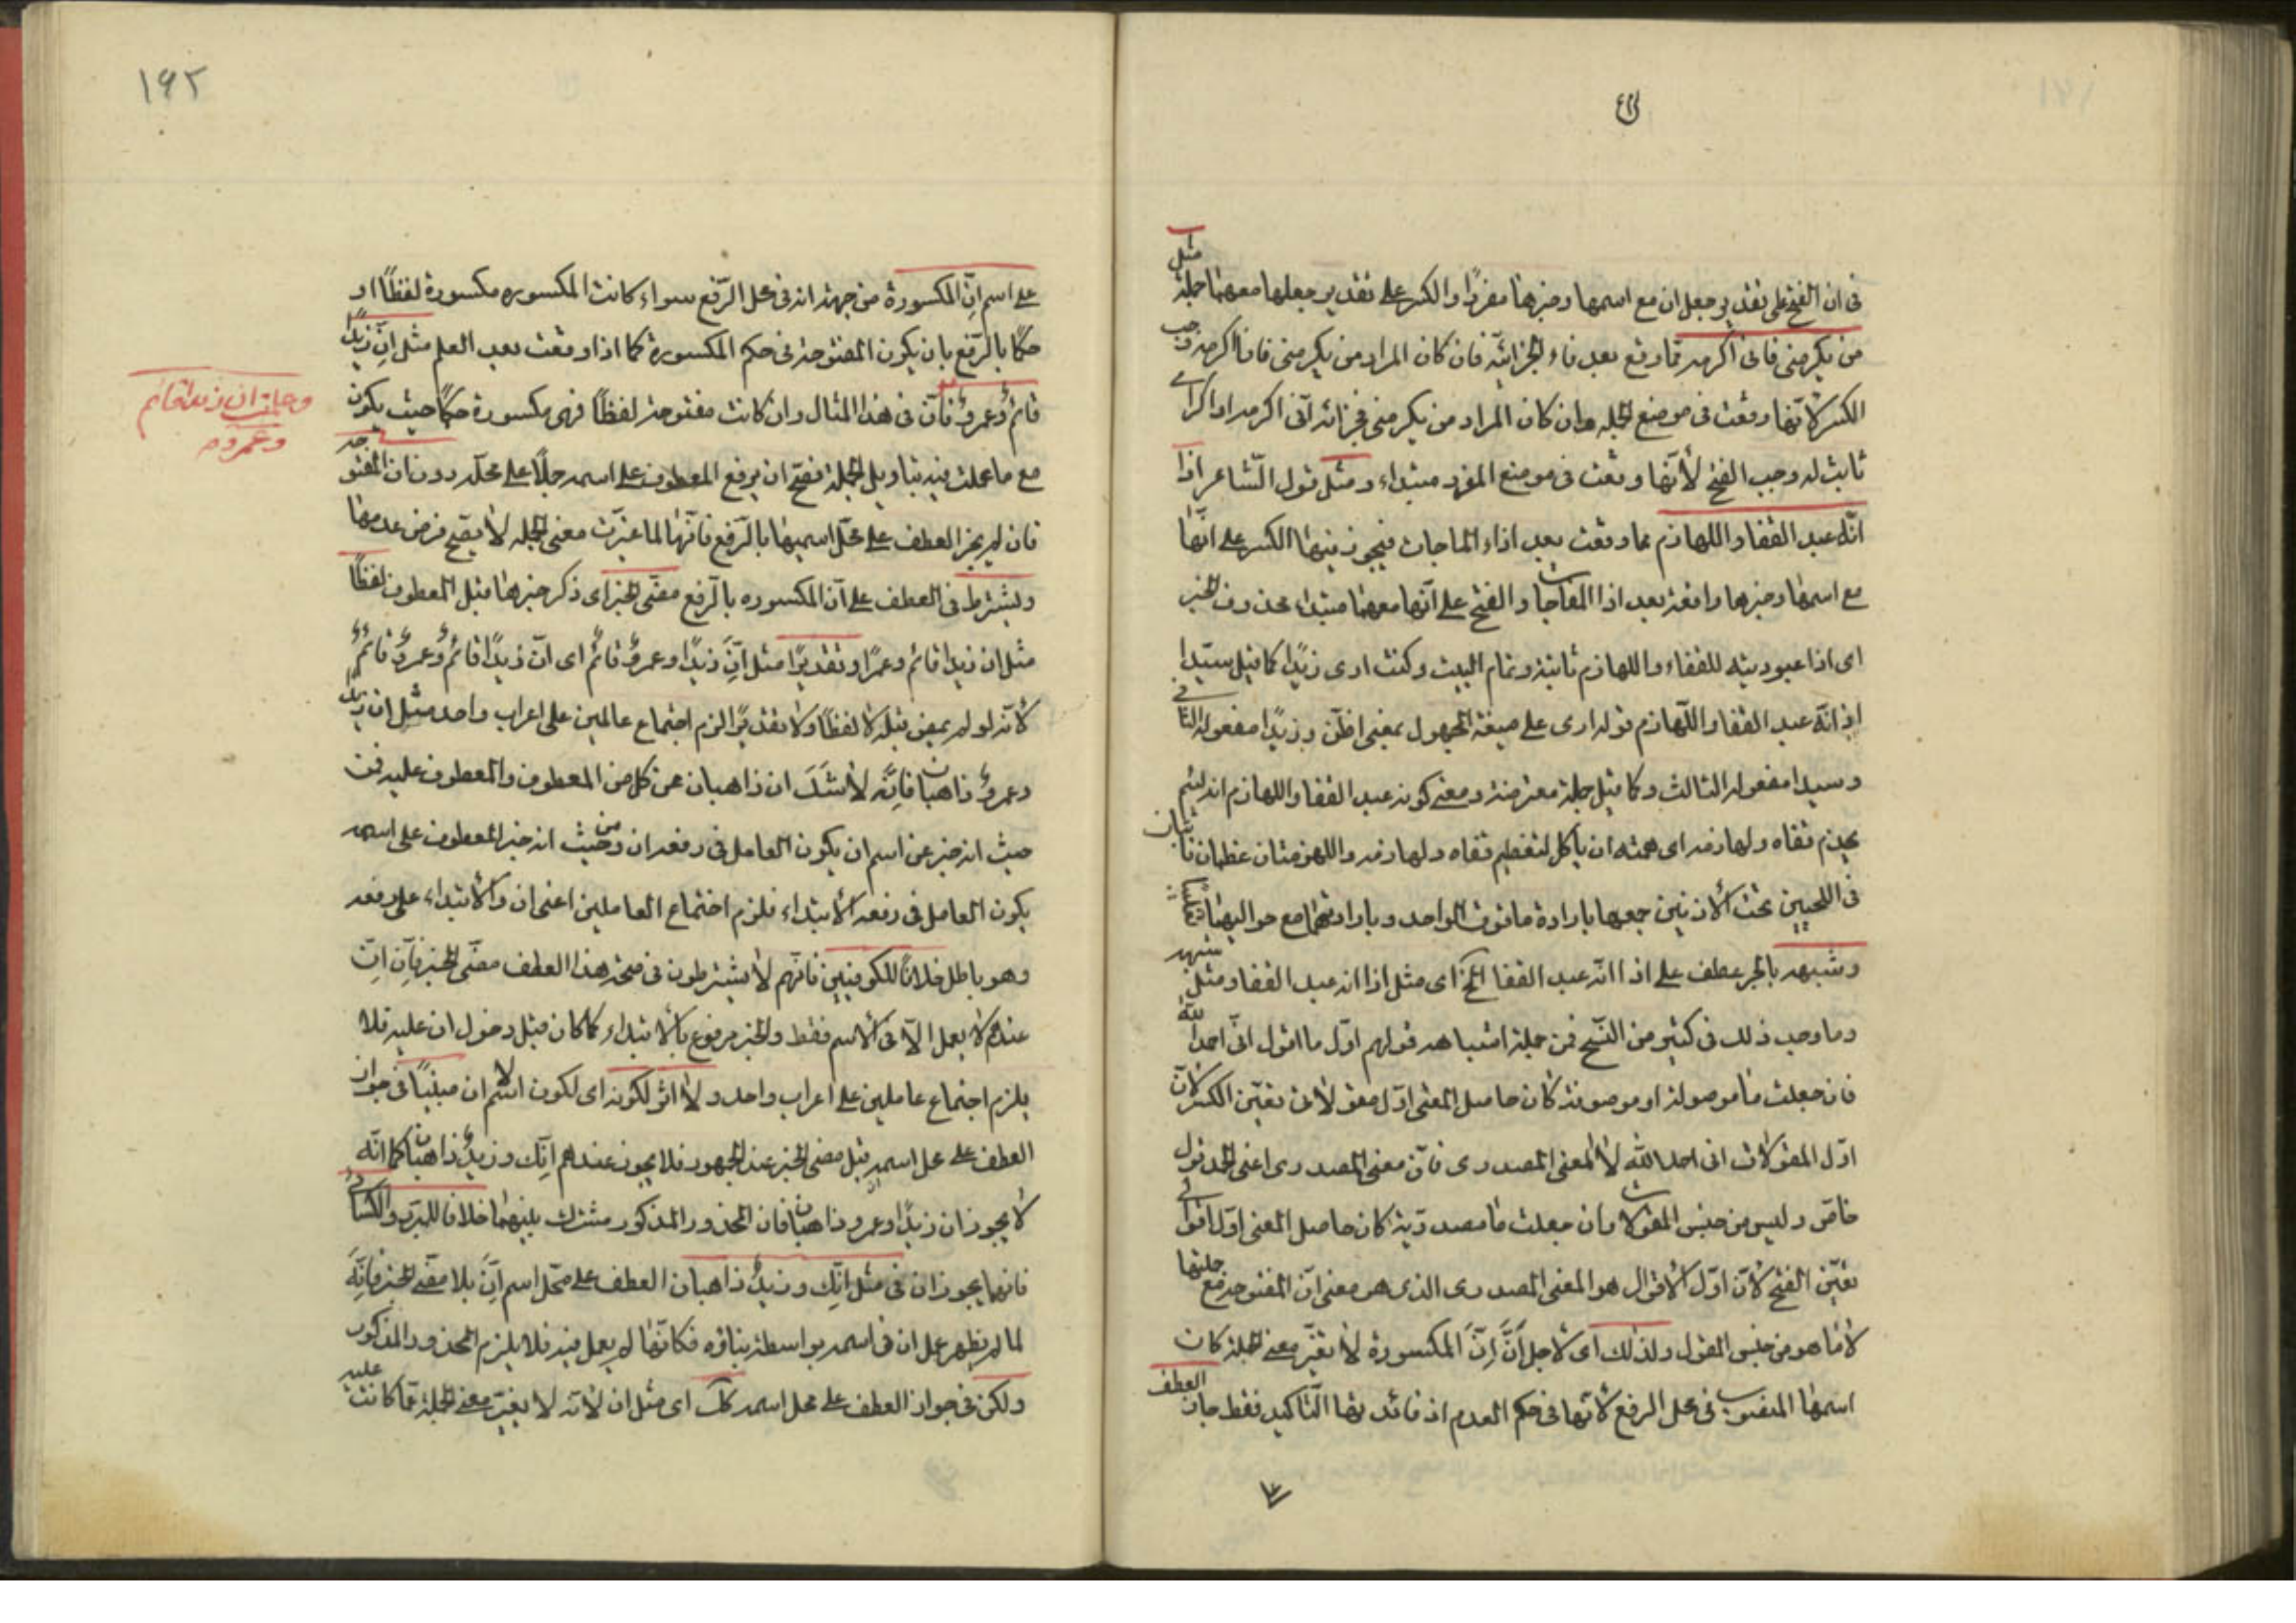 في ان الفتح على تقدير جعل ان مع اسمها وخبرها مفردا والكسر على تقدير جعلها معهما جملة مثل
من يكرمني فاني اكرمه مما وقع بعد فاء الجزائية فان كان المراد من يكرمني فانا اكرمه وجب
الكسر لأنها وقعت في موضع الجملة وان كان المراد من يكرمني فجزائه أني اكرمه او اكرامي
ثابت له وجب الفتح لأنها وقعت في موضع المفرد مبتداء ومثل قول الشاعر اذا
انه عبد القفا واللهازم مما وقعت بعد اذاء المفاجات فيجوز فيها الكسر على انها
مع اسمها وخبرها واقعة بعد اذا المفاجات والفتح على أنها معهما مبتداء محذوف الخبر
اى اذا عبوديته للقفاء واللهازم ثابتة وتمام البيت وكنت ارى زيدا كما قيل سيدا
اذا انه عبد القفا واللهازم قوله ارى على صيغة المجهول بمعنى اظن وزيدا مفعوله الثاني
وسيدا مفعوله الثالث وكما قيل جملة معترضة ومعنى كونه عبد القفا واللهازم انه لئيم
يخدم قفاه ولهازمه اى همته ان يأكل لتعظيم قفاه ولهازمه واللهزمتان عظمان ناتئان
في اللحيين تحت الأذنين جمعها بارادة ما فوق الواحد وبارادتهما مع حواليهما
وشبهه بالجر عطف على اذا انه عبد القفا الخ اى مثل اذا انه عبد القفا ومثل شبهه
وما وجب ذلك في كثير من النسخ فمن جملة اشباهه قولهم اول ما اقول اني احمد الله
فان جعلت ما موصولة او موصوفة كان حاصل المعنى اول مقولاتي تعين الكسر لأن
اول المقولات اني احمد الله لا المعنى المصدرى فان معنى المصدرى اعنى الحمد قول
خاص وليس من جنس المقولات وان جعلت ما مصدرية كان حاصل المعنى اول اقوالي
تعين الفتح لأن اول الأقوال هو المعنى المصدرى الذى هو معنى ان المفتوحة مع جملتها
لا ما هو من جنس المقول ولذلك اى لاجل أن إن المكسورة لا تغير معنى الجملة كان
اسمها المنصوب في محل الرفع لأنها في حكم العدم اذ فائدتها التاكيد فقط جاز العطف
١٩٢
على اسم إن المكسورة من جهة انه في محل الرفع سواء كانت المكسوره مكسورة لفظا او
حكما بالرفع بان يكون المفتوحة في حكم المكسورة كما اذا وقعت بعد العلم مثل إن زيدا
قائم وعمرو فأن في هذا المثال وان كانت مفتوحة لفظا فهى مكسورة حكما حيث يكون
مع ما عملت فيه بتاويل الجملة فصح ان يرفع المعطوف على اسمه حملا على محله دون ان المفتوحة
فان لم يجز العطف على محل اسمها بالرفع فانها لما غيرت معنى الجملة لا يصح فرض عدمها
ويشترط في العطف على أن المكسوره بالرفع مضى الخبر اى ذكر خبرها قبل المعطوف لفظا
مثل ان زيدا قائم وعمرو او تقديرا مثل إن زيدا وعمرو قائم اى ان زيدا قائم وعمرو قائم
لأنه لو لم يمض قبله لا لفظا ولا تقديرا لزم اجتماع عاملين على اعراب واحد مثل ان زيدا
وعمرو ذاهبان فإنه لا شك ان ذاهبان عن كل من المعطوف والمعطوف عليه فمن
حيث انه خبر عن اسم ان يكون العامل في رفعه ان ومن حيث انه خبر المعطوف على اسمه
يكون العامل في رفعه الأبتداء فلزم اجتماع العاملين اعنى ان والأبتداء على رفعه
وهو باطل خلافا للكوفيين فانهم لا يشترطون في صحة هذا العطف مضى الخبر فإن إن
عندهم لا يعمل الا في الأسم فقط والخبر مرفوع بالأبتداء كما كان قبل دخول ان عليه فلا
يلزم اجتماع عاملين على اعراب واحد ولا اثر لكونه اى لكون اسم ان مبنيا في جواز
العطف على محل اسمه قبل مضى الخبر عند الجمهور فلا يجوز عندهم إنك وزيد ذاهبان كما انه
لا يجوز ان زيدا وعمرو ذاهبان فان المحذور المذكور مشترك بينهما خلافا للمبرد والكسائي
فانهما يجوزان في مثل انك وزيد ذاهبان العطف على محل اسم ان بلا مضى الخبر فانه
لما لم يظهر عمل ان في اسمه بواسطة بنائه فكانها لم يعمل فيه فلا يلزم المحذور المذكور
ولكن في جواز العطف على محل اسمه كذلك اى مثل ان لأنه لا يغير معنى الجملة عما كانت عليه
وجملة ان زيدا قائم
وعمرو